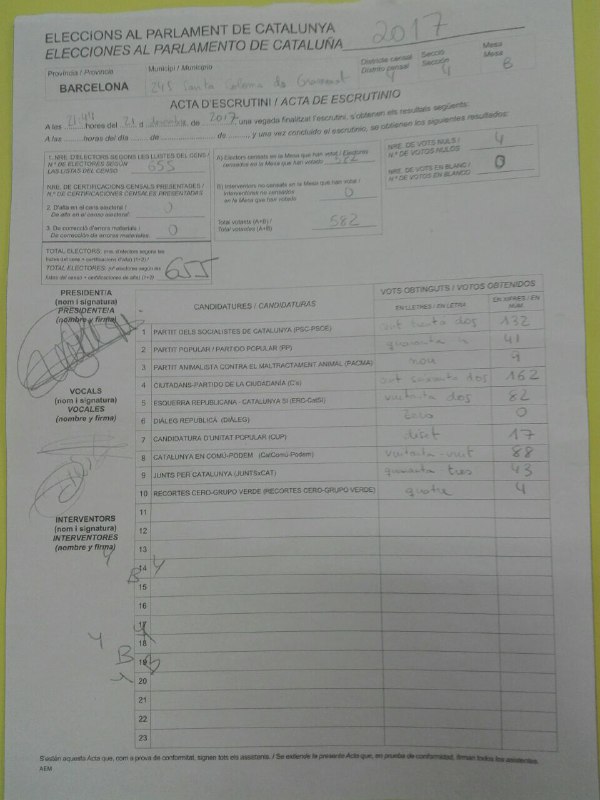 ELECCIONS AL PARLAMENT DE CATALUNYA
ELECCIONES AL PARLAMENTO DE CATALUÑA 2017
Província / Provincia
BARCELONA
Municipi / Municipio
245 Santa Coloma de Gramenet
Districte censal
Distrito censal
9
Secció
Sección
4
Mesa
Mesa
B
ACTA D'ESCRUTINI / ACTA DE ESCRUTINIO
A les 21:44 hores del 21 d desembre de 2017 una vegada finalitzat l'escrutini, s'obtenen els resultats següents:
A las horas del día de de y una vez concluido el escrutinio, se obtienen los siguientes resultados:
1. NRE. D'ELECTORS SEGONS LES LLISTES DEL CENS /
N.º DE ELECTORES SEGÚN
LAS LISTAS DEL CENSO
655
NRE. DE CERTIFICACIONS CENSALS PRESENTADES /
N.º DE CERTIFICACIONES CENSALES PRESENTADAS
2. D'alta en el cens electoral /
De alta en el censo electoral
0
3. De correcció d'errors materials /
De corrección de errores materiales
0
TOTAL ELECTORS: (nre. d'electors segons les
llistes del cens + certificacions d'alta) (1+2) /
TOTAL ELECTORES: (nº electores según
listas del censo + certificaciones de alta) (1+2)
655
A) Electors censats en la Mesa que han votat / Electores
censados en la Mesa que han votado 582
B) Interventors no censats en la Mesa que han votat /
Interventores no censados
en la Mesa que han votado
0
Total votants (A+B) /
Total votantes (A+B)
582
NRE. DE VOTS NULS /
N.º DE VOTOS NULOS
4
NRE. DE VOTS EN BLANC /
N.º DE VOTOS EN BLANCO
0
PRESIDENT/A
(nom i signatura)
PRESIDENTE/A
(nombre y firma)
VOCALS
(nom i signatura)
VOCALES
(nombre y firma)
INTERVENTORS
(nom i signatura)
INTERVENTORES
(nombre y firma)
CANDIDATURES / CANDIDATURAS
VOTS OBTINGUTS / VOTOS OBTENIDOS
EN LLETRES / EN LETRA
EN XIFRES / EN NÚM.
1 PARTIT DELS SOCIALISTES DE CATALUNYA (PSC-PSOE) cent trenta dos 132
2 PARTIT POPULAR / PARTIDO POPULAR (PP) quaranta u 41
3 PARTIT ANIMALISTA CONTRA EL MALTRACTAMENT ANIMAL (PACMA) nou 9
4 CIUTADANS-PARTIDO DE LA CIUDADANÍA (C's) cent seixanta dos 162
5 ESQUERRA REPUBLICANA - CATALUNYA SÍ (ERC-CatSí) vuitanta dos 82
6 DIÀLEG REPUBLICÀ (DIÀLEG) zero 0
7 CANDIDATURA D'UNITAT POPULAR (CUP) diset 17
8 CATALUNYA EN COMÚ-PODEM (CatComú-Podem) vuitanta-vuit 88
9 JUNTS PER CATALUNYA (JUNTSxCAT) quaranta-tres 43
10 RECORTES CERO-GRUPO VERDE (RECORTES CERO-GRUPO VERDE) quatre 4
11
12
13
14
15
16
17
18
19
20
21
22
23
4
B
4
4
B
B
S'estén aquesta Acta que, com a prova de conformitat, signen tots els assistents. / Se extiende la presente Acta que, en prueba de conformidad, firman todos los asistentes.
AEM